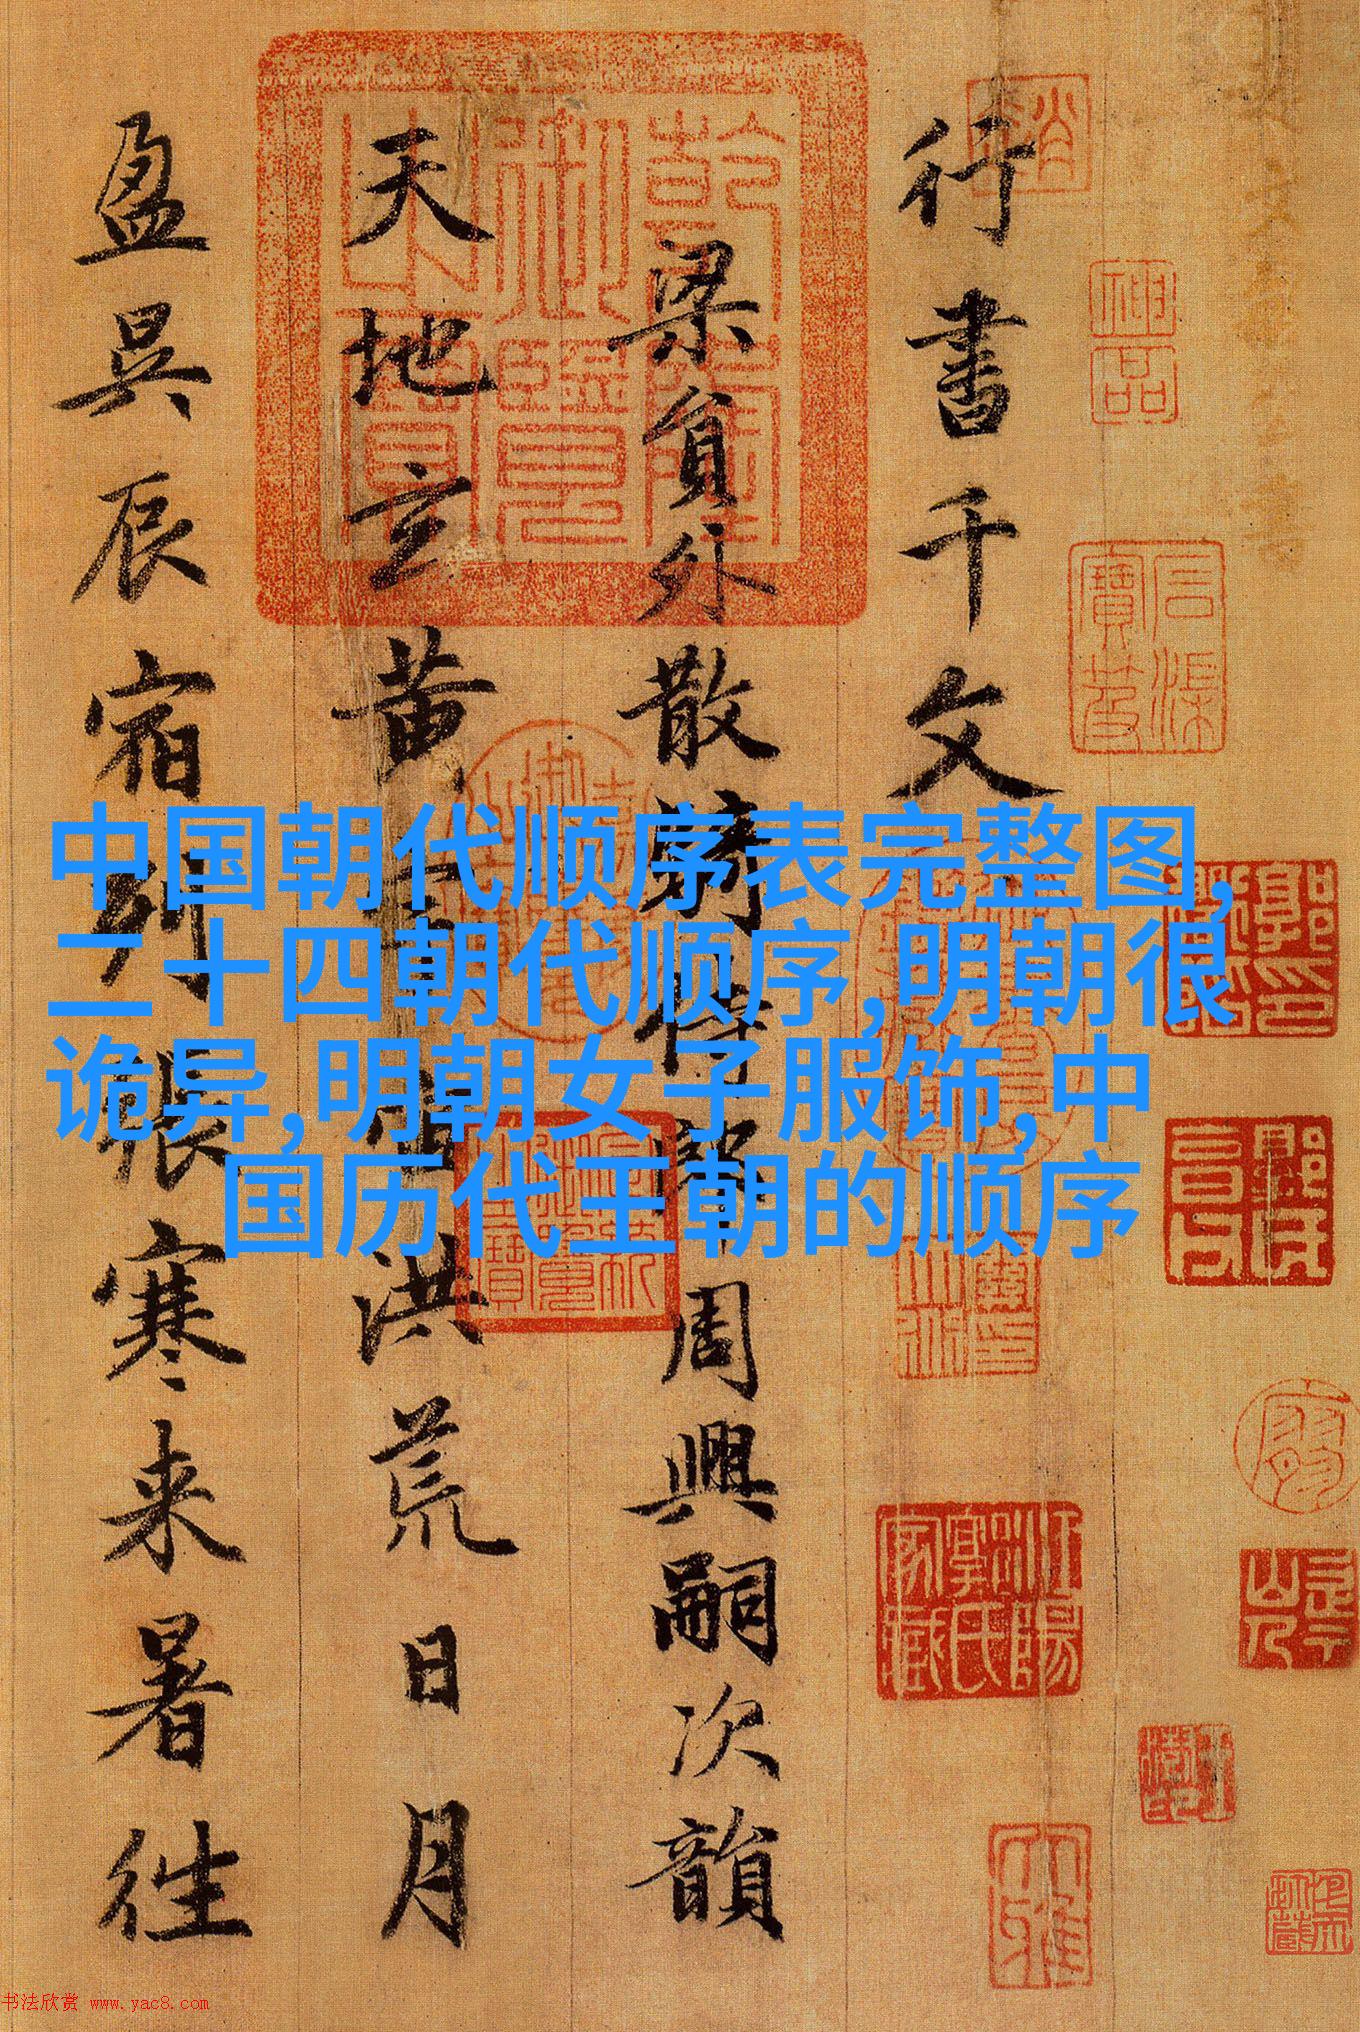 中国朝代顺序表完整图,
二十四朝代顺序,明朝很
诡异,明朝女子服饰,中
国历代王朝的顺序
行書千文
梁員外散騎侍郎周興嗣次韻
天地玄黄宇宙洪荒日月
盈昃辰宿列張寒来暑徃
乾隆御覽之寶
神品
石渠寶笈
大雅
书法欣赏 www.yac8.com